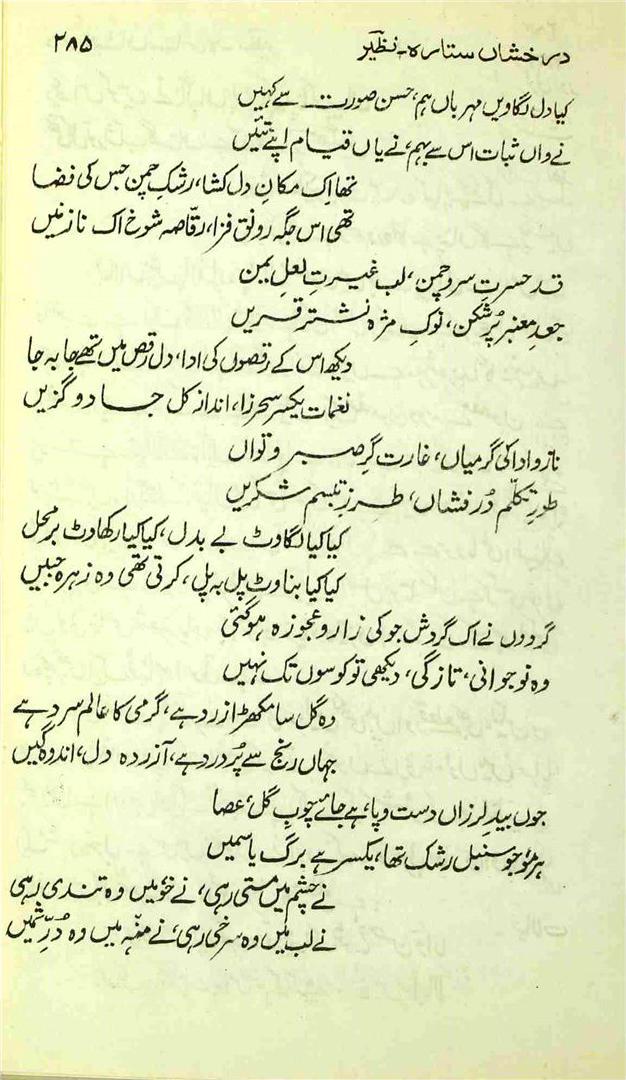 درخشاں ستارہ۔نظیر ۲۸۵
کیا دل لگاویں مہرباں ہم، حسن صورت سے کہیں
نے واں ثبات اس سے بہم، نے یاں قیام اپنے تئیں
تھا اِک مکانِ دل کشا، رشکِ چمن جس کی فضا
تھی اس جگہ رونق فزا، رقّاصہ شوخ اک نازنیں
قد حسرتِ سروِ چمن، لب غیرتِ لعلِ یمن
جعدِ معنبر پُر شکن، نوکِ مژہ نشتر قریں
دیکھ اس کے رقصوں کی ادا، دل رقص میں تھے جا بہ جا
نغمات یکسر سحر زا، انداز کل جادو گزیں
ناز و ادا کی گرمیاں، غارت گرِ صبر و تواں
طورِ تکلّم دُر فشاں، طرزِ تبسم شکریں
کیا کیا لگاوٹ بے بدل، کیا کیا رکھاوٹ برمحل
کیا کیا بناوٹ پل بہ پل، کرتی تھی وہ زہرہ جبیں
گردوں نے اک گردش جو کی زار و عجوزہ ہوگئی
وہ نوجوانی، تازگی، دیکھی تو کوسوں تک نہیں
وہ گل سا مکھڑا زرد ہے، گرمی کا عالم سرد ہے
جہاں رنج سے پُر درد ہے، آزردہ دل، اندوہ گیں
جوں بید لرزاں دست و پا، ہے جائے چوبِ گل، عصا
ہر مُو جو سنبل رشک تھا، یکسر ہے برگ یاسمیں
نے چشم میں مستی رہی، نے خُو میں وہ تندی رہی
نے لب میں وہ سرخی رہی، نے منہ میں وہ دُرِّ ثمیں